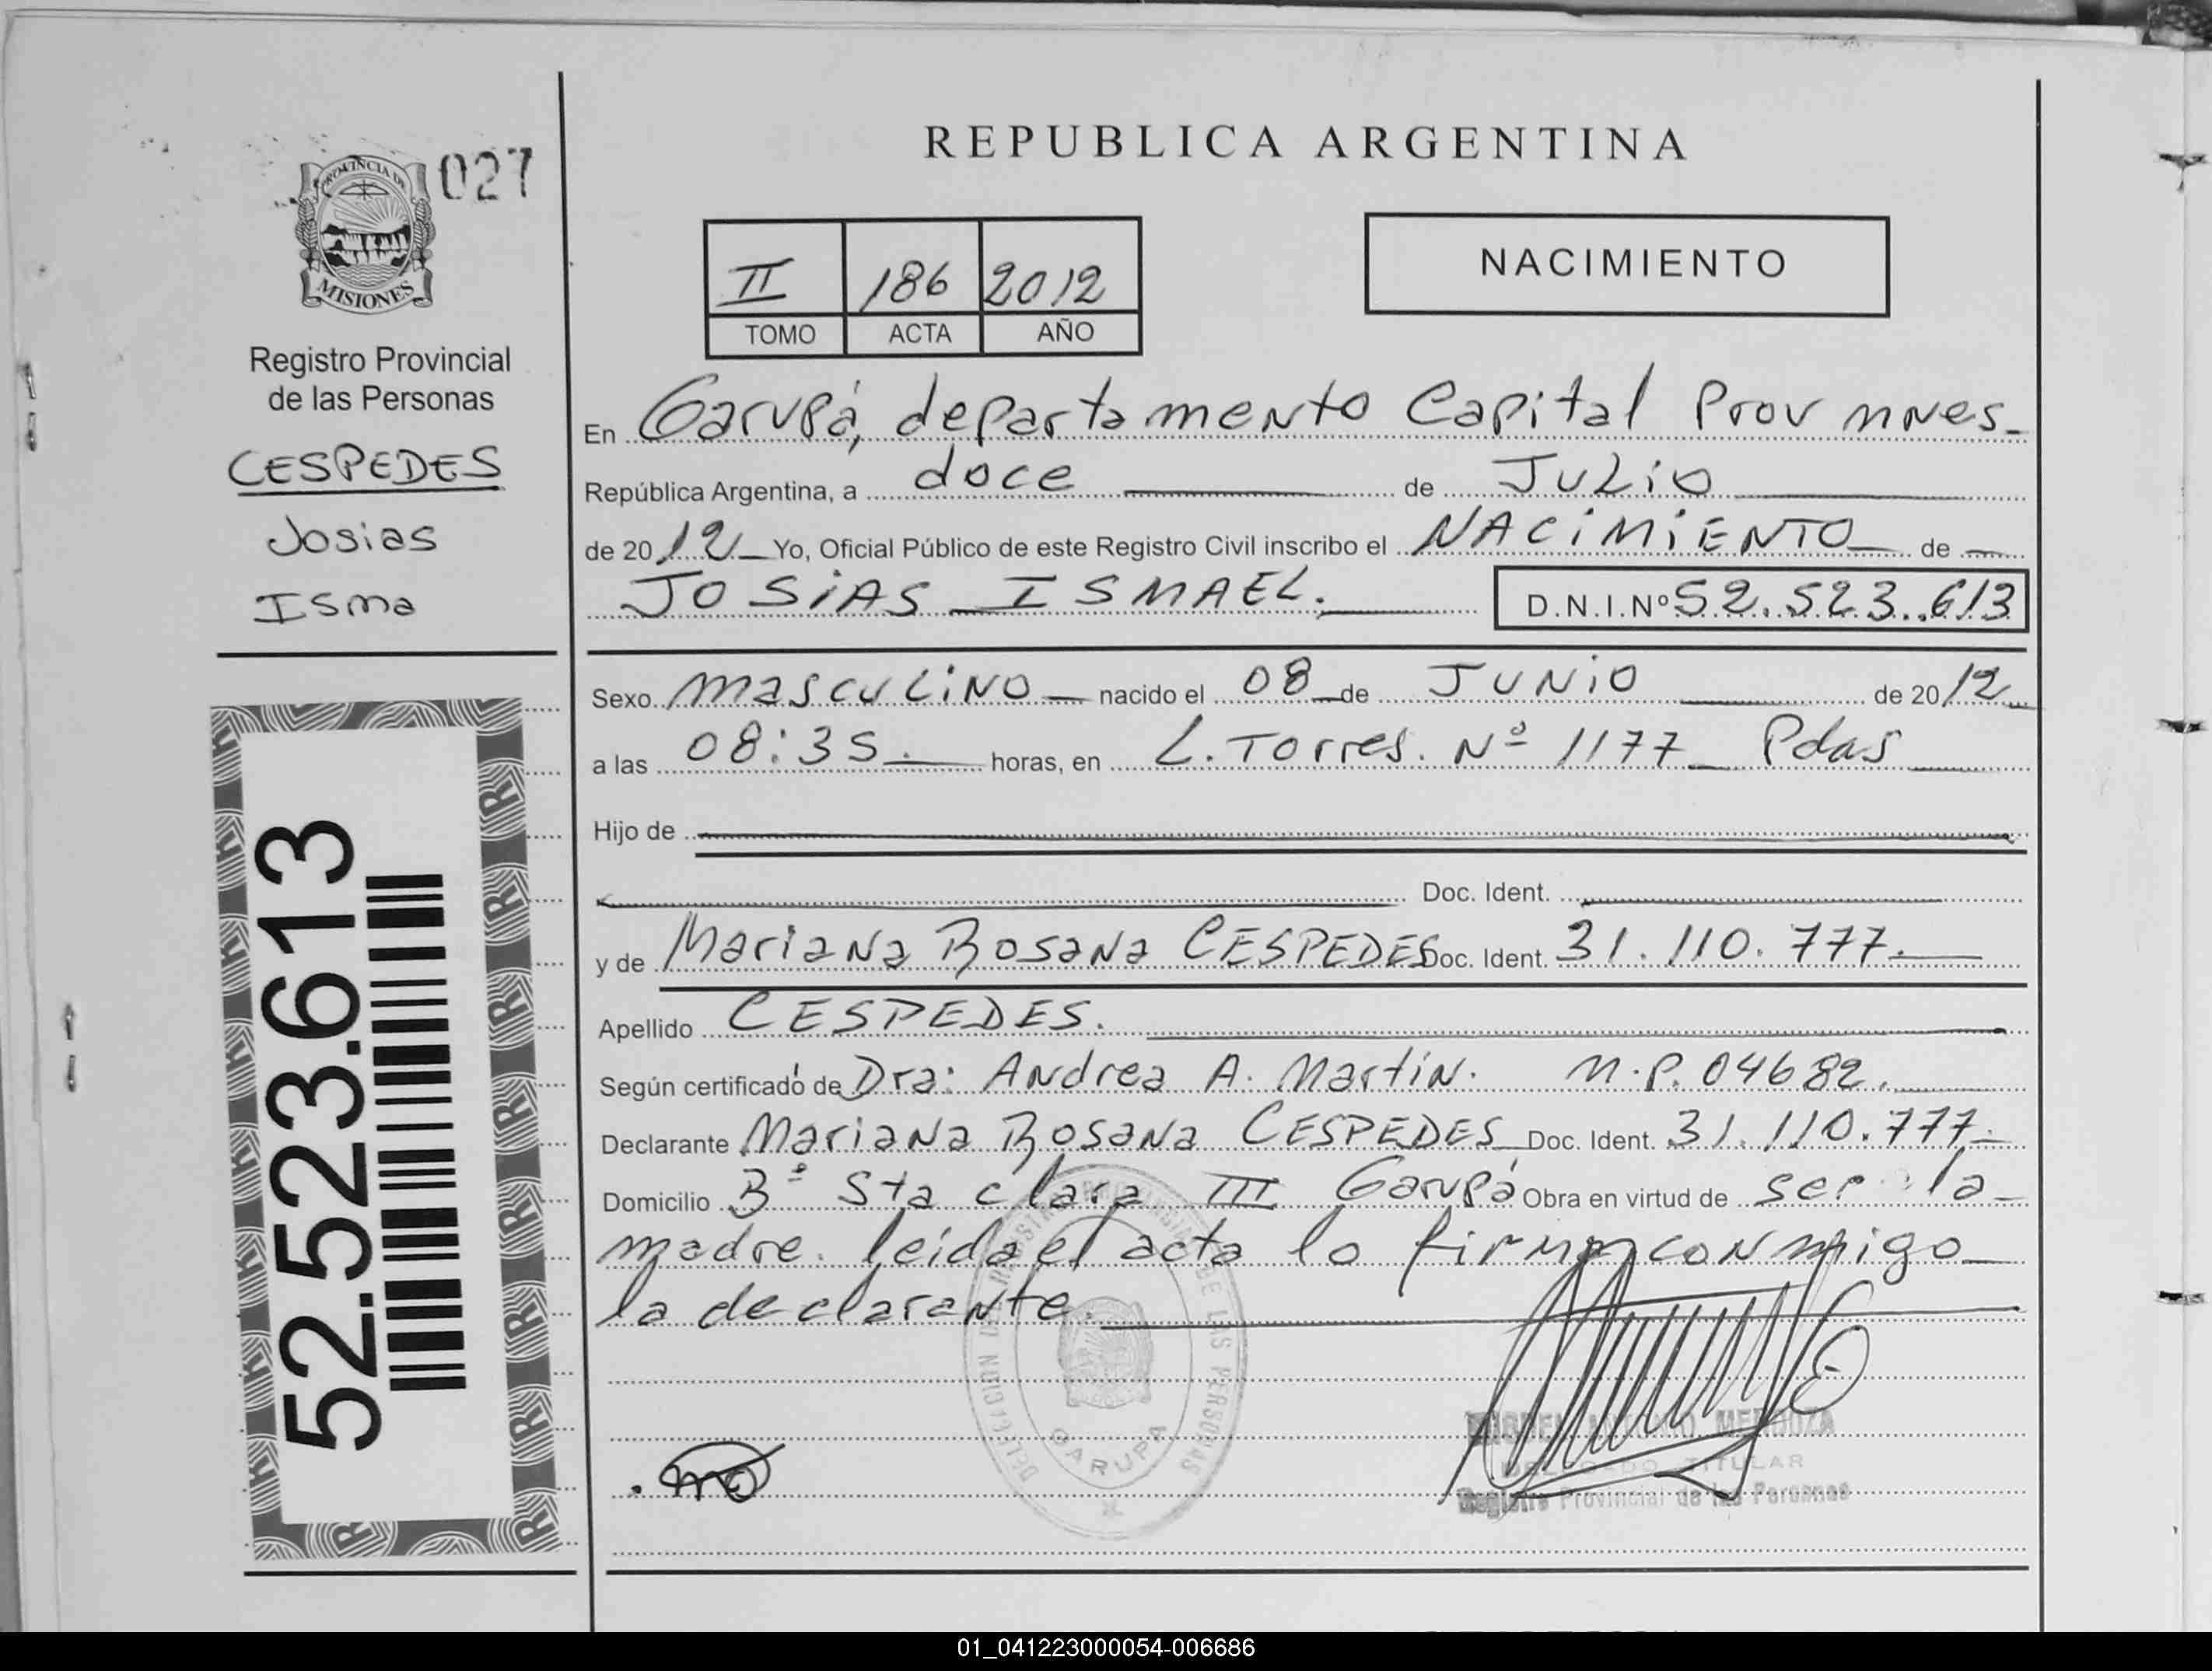 PROVINCIA DE
MISIONES
027
Registro Provincial
de las Personas
CESPEDES
Josias
Isma
52.523.613
REPUBLICA ARGENTINA
II 186 2012
TOMO ACTA AÑO
NACIMIENTO
En Garupá, departamento Capital Prov mnes
República Argentina, a doce de Julio
de 2012 Yo, Oficial Público de este Registro Civil inscribo el NACIMIENTO de
JOSIAS ISMAEL. D.N.I.Nº 52.523.613
Sexo masculino nacido el 08 de JUNIO de 2012
a las 08:35. horas, en L. Torres. Nº 1177 Pdas
Hijo de
Doc. Ident.
y de Mariana Rosana CESPEDES Doc. Ident. 31.110.777.
Apellido CESPEDES.
Según certificado de Dra: Andrea A. Martin. M.P. 04682.
Declarante Mariana Rosana CESPEDES Doc. Ident. 31.110.777.
Domicilio Bº Sta clara III Garupá Obra en virtud de ser la
madre. leida el acta lo firma conmigo
la declarante.
DELEGACION DEL REGISTRO PROVINCIAL DE LAS PERSONAS
GARUPA
MENDOZA
DELEGADO TITULAR
Registro Provincial de las Personas
01_041223000054-006686